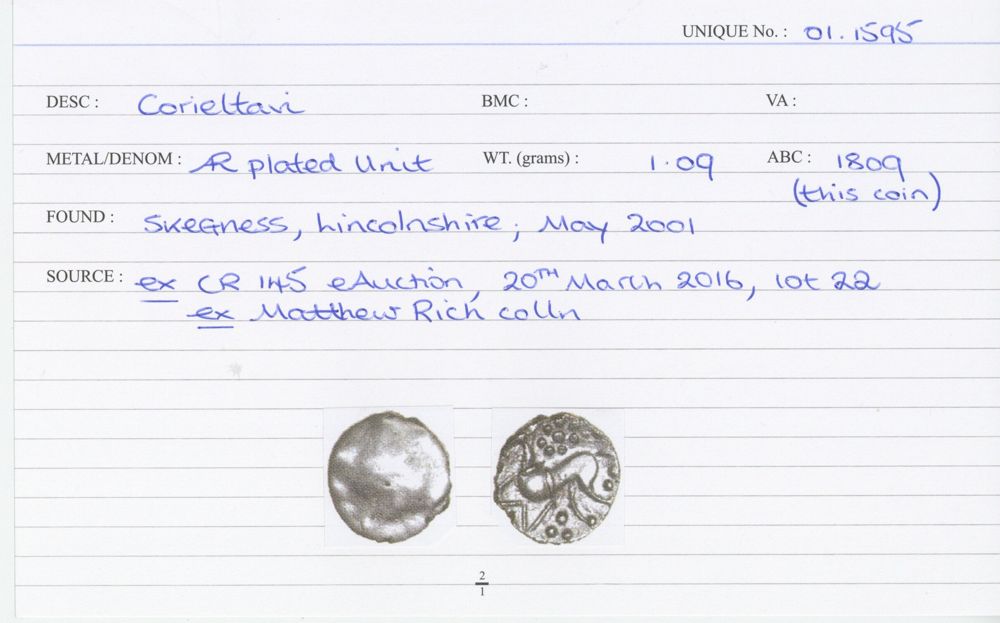 UNIQUE No. : 01.1595
DESC : Corieltavi BMC : VA :
METAL/DENOM : AR plated Unit WT. (grams) : 1.09 ABC : 1809
(this coin)
FOUND : Skegness, Lincolnshire; May 2001
SOURCE : ex CR 145 eAuction, 20TH March 2016, lot 22
ex Matthew Rich colln
2
1